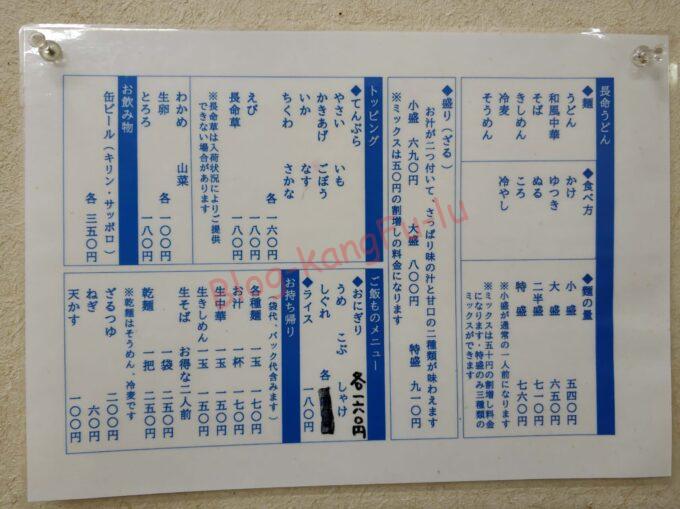 長命うどん
◆麺
うどん
和風中華
そば
きしめん
冷麦
そうめん
◆食べ方
かけ
ゆつき
ぬる
ころ
冷やし
◆麺の量
小盛 五四〇円
大盛 六五〇円
二半盛 七一〇円
特盛 七六〇円
※小盛が通常の一人前になります
※ミックスは五十円の割増し料金
になります・特盛のみ三種類の
ミックスができます
◆盛り（ざる）
お汁が二つ付いて、さっぱり味の汁と甘口の二種類が味わえます
小盛 六九〇円 大盛 八〇〇円 特盛 九一〇円
※ミックスは五〇円の割増しの料金になります
トッピング
◆てんぷら
やさい いも
かきあげ ごぼう
いか なす
ちくわ さかな
各 一六〇円
えび 一八〇円
長命草 一八〇円
※長命草は入荷状況によりご提供
できない場合があります
わかめ 山菜
生卵 各 一〇〇円
とろろ 一八〇円
お飲み物
缶ビール（キリン・サッポロ）
各 三五〇円
ご飯ものメニュー
◆おにぎり
うめ こぶ しゃけ
しぐれ 各
各一六〇円
◆ライス 一八〇円
お持ち帰り
（袋代、パック代含みます）
各種麺 一玉 一七〇円
お汁 一杯 一七〇円
生中華 一玉 一五〇円
生きしめん 一玉 一五〇円
生そば お得な二人前
一袋 二五〇円
乾麺 一把 二五〇円
※乾麺はそうめん、冷麦です
ざるつゆ 二〇〇円
ねぎ 六〇円
天かす 一〇〇円
Blog-kangFu-lu